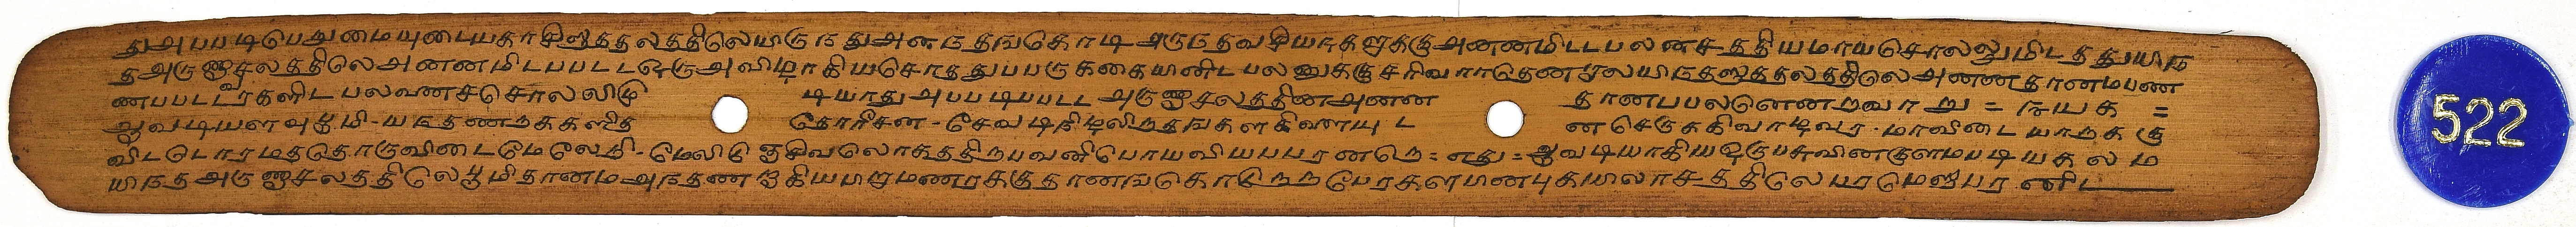 துஅபபடிபெருமையுடையகாசிஸ்தலத்திலெயிருந்துஅனந்தங்கொடி அருந்தவசியாகளுக்குஅன்னமிட்டபலன்சத்தியமாயசொலலுமிடத்துயிந்
தஅருணாசலத்திலெஅன்னமிடப்பட்டஒருஅவிழாகியசொத்துப்பருக்கையினிடபலனுக்குசரிவாராதென்றுயிந்தஸ்தலத்திலெஅன்னதானம்பண்
ணப்பட்டவர்களிடபலவணசசொலலிமு டியாதுஅப்படிப்பட்ட அருணாசலத்தின்அன்ன தானப்பலனென்றவாறு = ௩௰௧ =
ஆவடியளவுபூமி-யந்தணருக்களித தோரீசன்-சேவடிநிழலிருந்தங்களகிணயுட ன்செருக்கிவாழ்வர்.மாவிடையாருக்கு
விடடொரமததொருவிடைமேலேறி-மேலிடுசிவலொகத்திருபவனிபொய்வியப்பரன்றெ=எது=ஆவடியாகியஒருபசுவின்குளம்படியகலம
யிந்தஅருணாசலத்திலெபூமிதானம்அந்தணராகியபிறமணரக்குதானங்கொடுத்தபேர்கள்பின்புகயிலாசத்திலெபரமெஸ்பரனிட
522